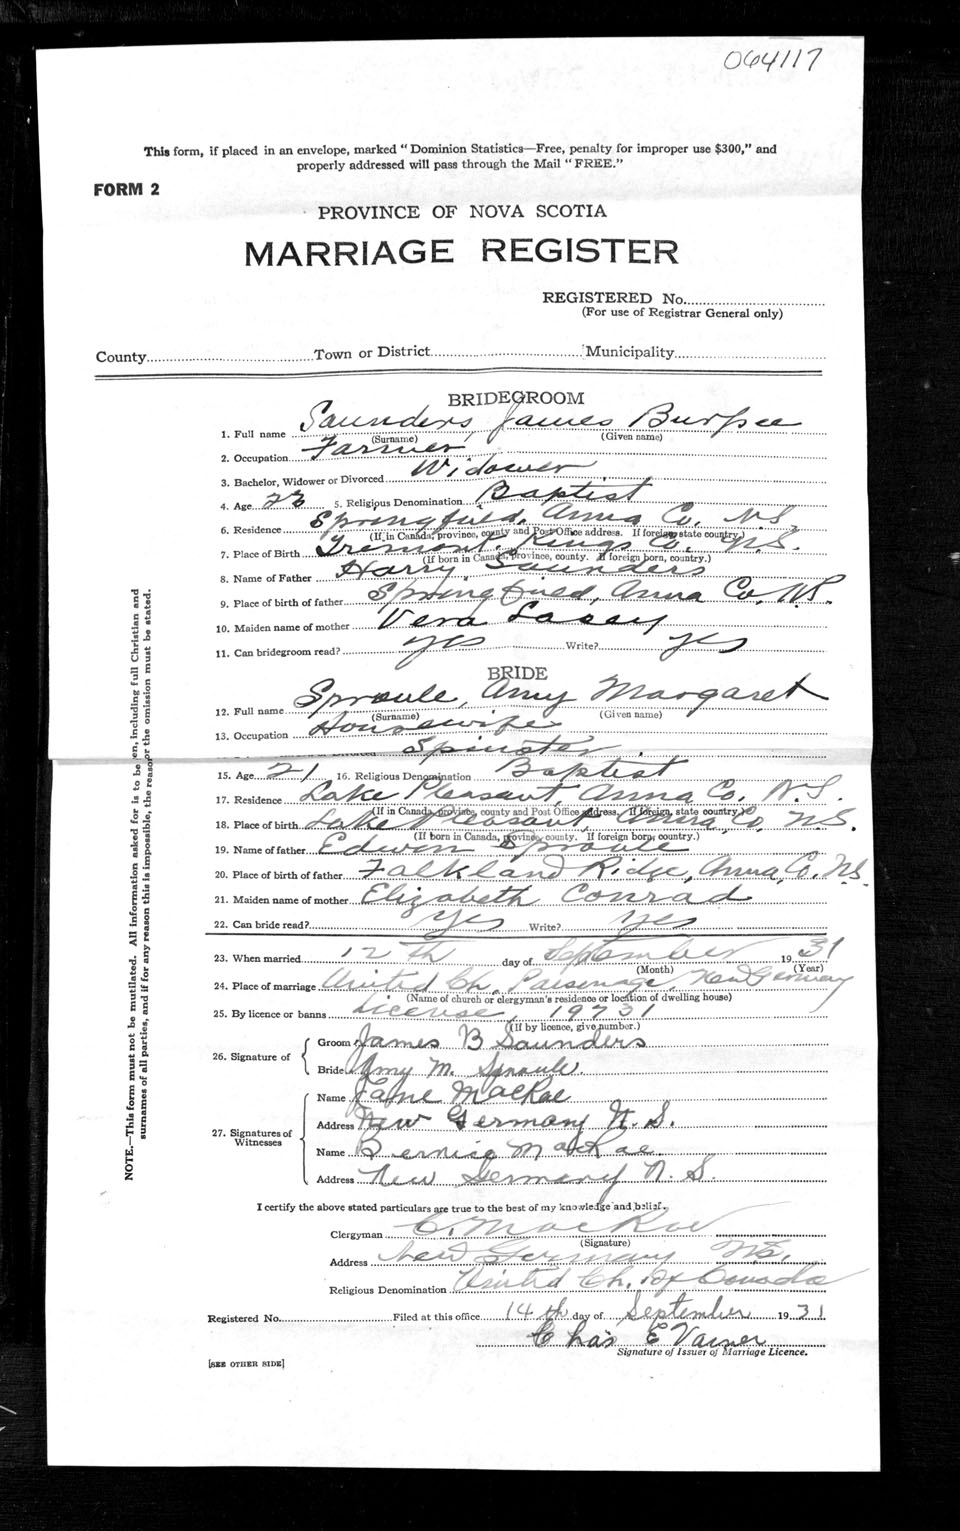 064117
This form, if placed in an envelope, marked "Dominion Statistics—Free, penalty for improper use $300," and
properly addressed will pass through the Mail "FREE."
FORM 2
PROVINCE OF NOVA SCOTIA
MARRIAGE REGISTER
REGISTERED No.
(For use of Registrar General only)
County Town or District Municipality
BRIDEGROOM
1. Full name Saunders, James Burpee
(Surname) (Given name)
2. Occupation Farmer
3. Bachelor, Widower or Divorced Widower
4. Age 23 5. Religious Denomination Baptist
6. Residence Springfield, Anna Co, N.S.
(If in Canada, province, county and Post Office address. If foreign, state country.)
7. Place of Birth Tremont, Kings Co, N.S.
(If born in Canada, province, county. If foreign born, country.)
8. Name of Father Harry Saunders
9. Place of birth of father Springfield, Anna Co, N.S.
10. Maiden name of mother Vera
11. Can bridegroom read? yes Write? yes
BRIDE
12. Full name Sproule, Amy Margaret
(Surname) (Given name)
13. Occupation Housewife
Spinster
15. Age 21 16. Religious Denomination Baptist
17. Residence Lake Pleasant, Anna Co, N.S.
(If in Canada, province, county and Post Office address. If foreign, state country.)
18. Place of birth Lake Pleasant, Anna Co, N.S.
(If born in Canada, province, county. If foreign born, country.)
19. Name of father Edwin Sproule
20. Place of birth of father Falkland Ridge, Anna, Co. N.S.
21. Maiden name of mother Elizabeth Conrad
22. Can bride read? yes Write? yes
23. When married 12th day of September 1931
(Month) (Year)
24. Place of marriage United Ch. Parsonage, New Germany
(Name of church or clergyman's residence or location of dwelling house)
25. By licence or banns License, 19731
(If by licence, give number.)
26. Signature of Groom James B Saunders
Bride Amy M. Sproule
27. Signatures of Witnesses Name MacRae
Address New Germany N.S.
Name Bernice MacRae
Address New Germany N.S.
I certify the above stated particulars are true to the best of my knowledge and belief.
Clergyman C. MacRae
(Signature)
Address New Germany N.S.
Religious Denomination United Ch. of Canada
Registered No. Filed at this office 14th day of September 1931
Chas E
Signature of Issuer of Marriage Licence.
[SEE OTHER SIDE]
NOTE.—This form must not be mutilated. All information asked for is to be en, including full Christian and
surnames of all parties, and if for any reason this is impossible, the reason or the omission must be stated.